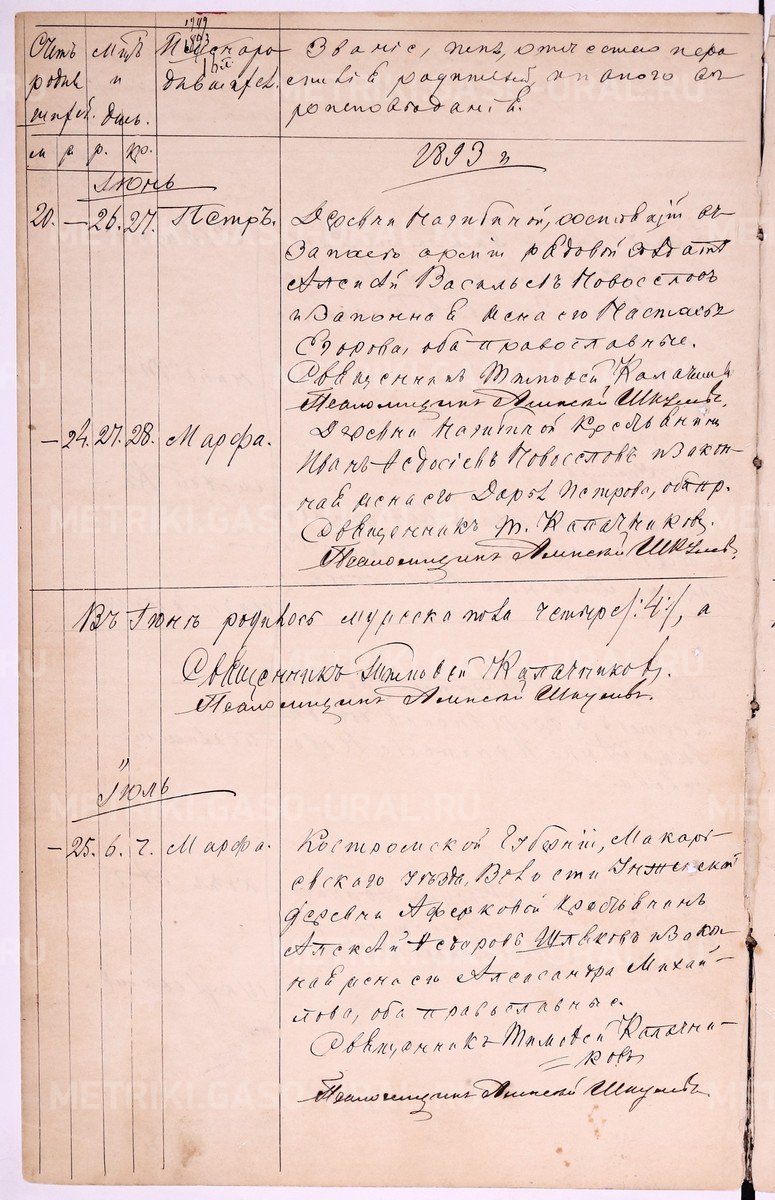 Счетъ родив шихся.
м. р.
Мѣсяцъ и день.
р. кр.
Имена родившихся.
Званіе, имя, отчество
родителей, и какого вѣ-
роисповѣданія.
1893 г
Іюнь
20. — 26. 27. Петръ.
Деревни состоящій въ
запасѣ арміи рядовой солдатъ
Алексѣй Васильевъ Новоселовъ
и законная жена его Настасья
Егорова, оба православные.
Священникъ Тимофей Калачник
Псаломщикъ Алексѣй Шкулевъ.
— 24. 27. 28. Марфа.
Деревни крестьянинъ
Иванъ Ѳедосіевъ Новоселовъ и закон-
ная жена его Дарья Петрова, оба пр.
Священникъ Т. Калачниковъ.
Псаломщикъ Алексѣй Шкулевъ.
Въ Іюнѣ родилось мужеска пола четыре /:4:/, а
Священникъ Тимофей Калачниковъ.
Псаломщикъ Алексѣй Шкулевъ.
Іюль
— 25. 6. 7. Марфа.
Костромской Губерніи, Макарь-
евскаго уѣзда, Волости Унженской
деревни Аферковой крестьянинъ
Алексѣй Ѳедоровъ Шляковъ и закон
ная жена его Александра Михай-
лова, оба православные.
Священникъ Тимофей Калачни-
ковъ
Псаломщикъ Алексѣй Шкулевъ.
METRIKI.GASO-URAL.RU